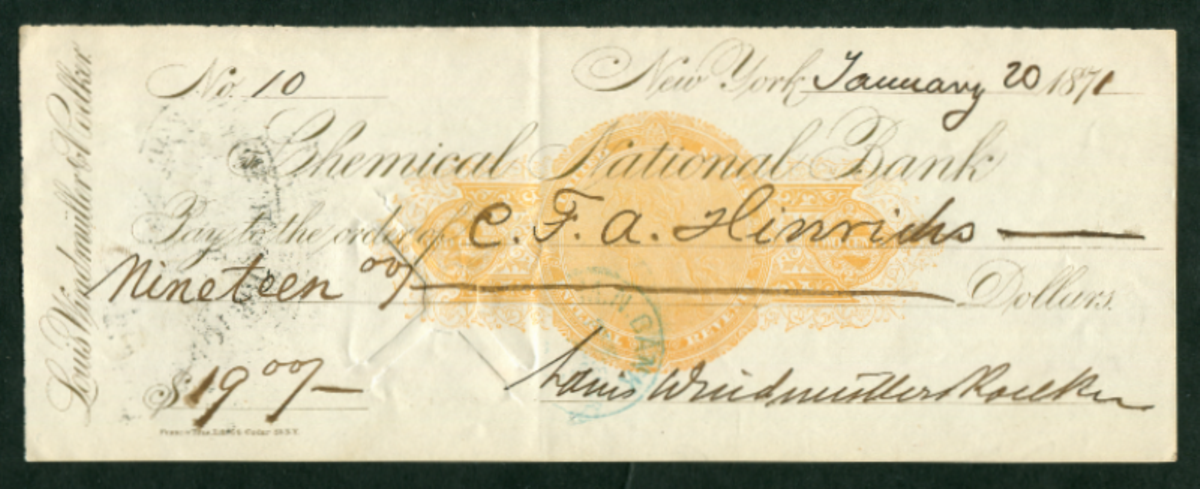 Louis Windmüller & Roelker
No. 10
New York January 20 1871
The Chemical National Bank
Pay to the order of C. F. A. Hinrichs
Nineteen 00/ Dollars.
$ 19 00/
Louis Windmüller & Roelker